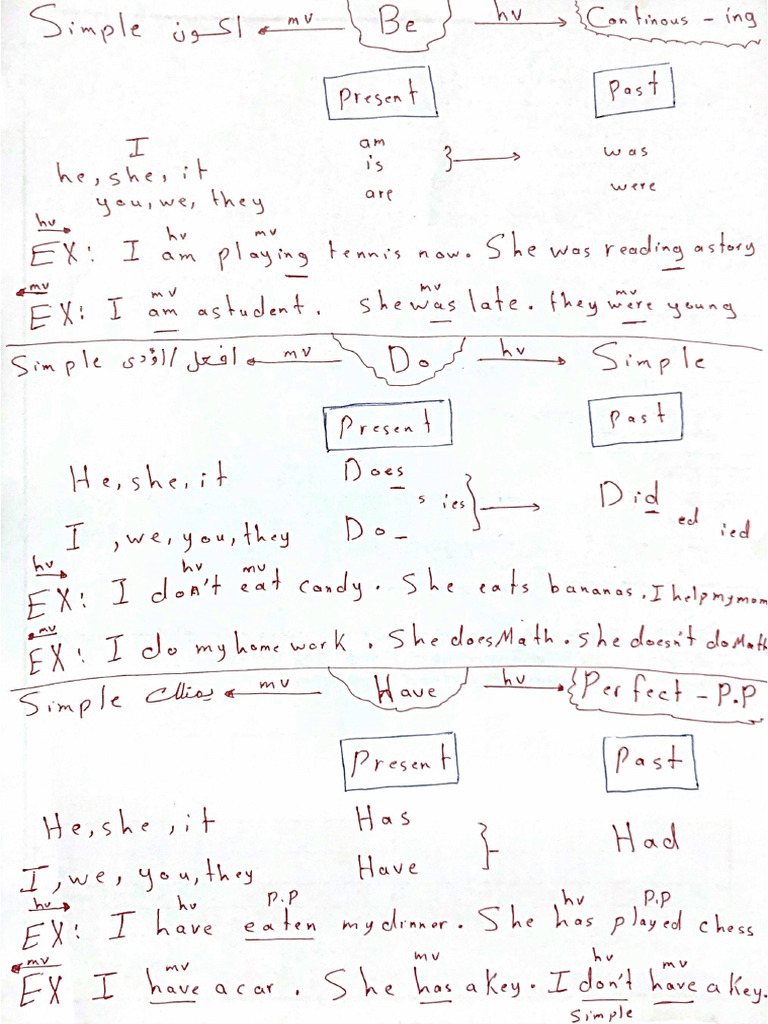 Simple اكون mv Be hv Continous - ing
Present Past
I am
he, she, it is was
you, we, they are were
hv
hv mv
EX: I am playing tennis now. She was reading a story
mv
mv mv mv
EX: I am a student. she was late. they were young
Simple افعل / اؤدى mv Do hv Simple
Present Past
He, she, it Does Did
s ies ed ied
I, we, you, they Do _
hv
hv mv
EX: I don't eat candy. She eats bananas. I help my mom
mv
EX: I do my home work. She does Math. she doesn't do Math
Simple يمتلك mv Have hv Perfect - P.P
Present Past
He, she, it Has Had
I, we, you, they Have
hv
hv P.P hv P.P
EX: I have eaten my dinner. She has played chess
mv
mv mv hv mv
EX I have a car. She has a key. I don't have a key.
Simple